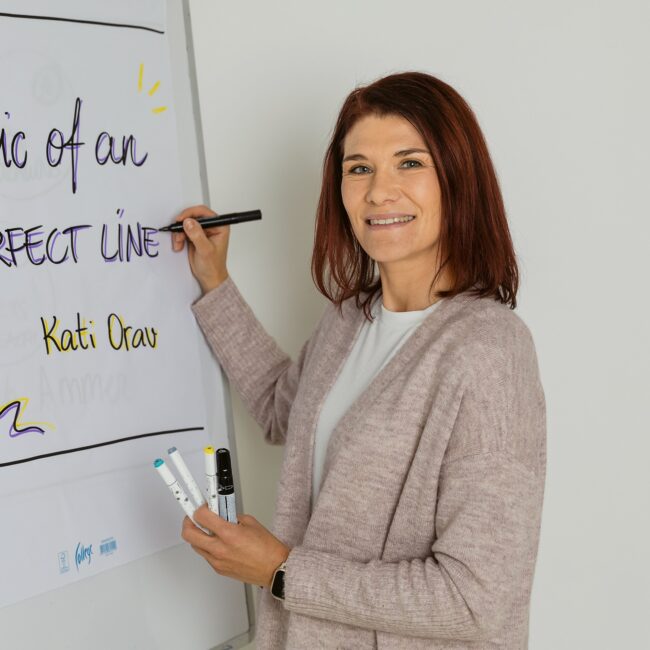 ic of an
RFECT LINE
Kati Orav
Ammer